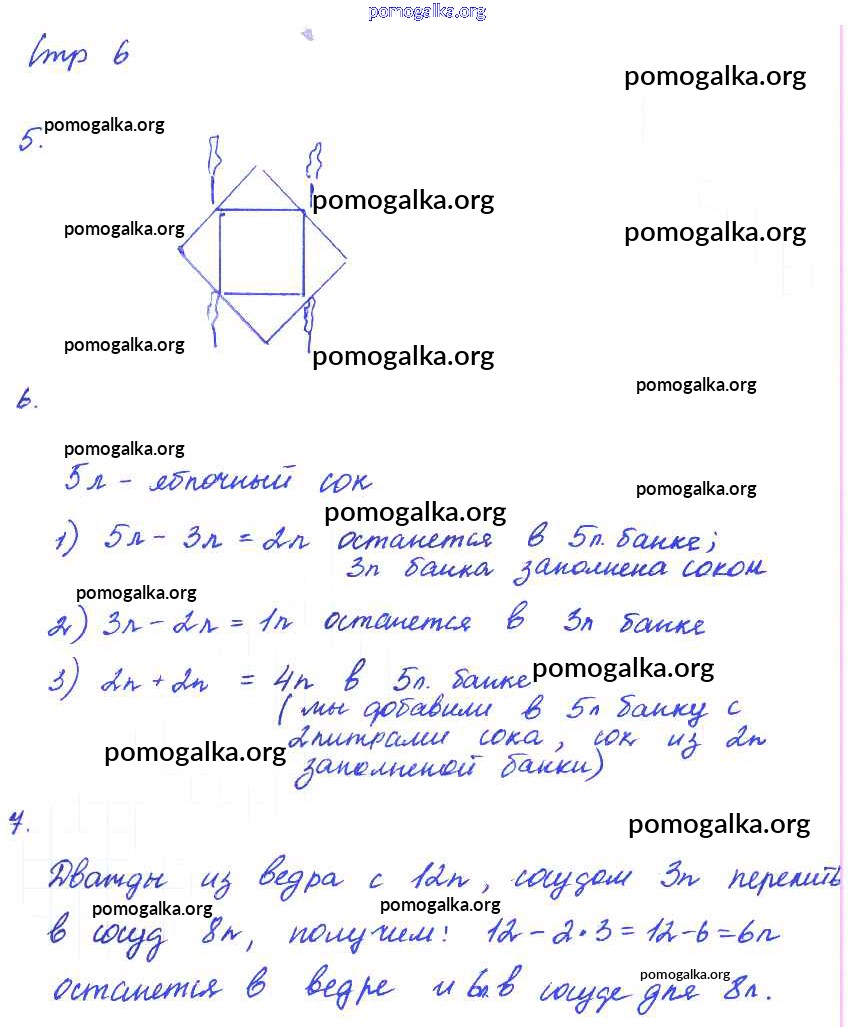 pomogalka.org
Стр 6
pomogalka.org
5. pomogalka.org
pomogalka.org
pomogalka.org pomogalka.org
pomogalka.org pomogalka.org
pomogalka.org
6.
pomogalka.org
5л - яблочный сок
pomogalka.org
pomogalka.org
1) 5л - 3л = 2л останется в 5л. банке;
3л банка заполнена соком
pomogalka.org
2) 3л - 2л = 1л останется в 3л банке
3) 2л + 2л = 4л в 5л. банке pomogalka.org
(мы добавили в 5л банку с
2литрами сока, сок из 2л
pomogalka.org
заполненой банки)
7.
pomogalka.org
Дважды из ведра с 12л, сосудом 3л перелить
pomogalka.org pomogalka.org
в сосуд 8л, получим: 12 - 2·3 = 12 - 6 = 6л
pomogalka.org
останется в ведре и 6л. в сосуде для 8л.